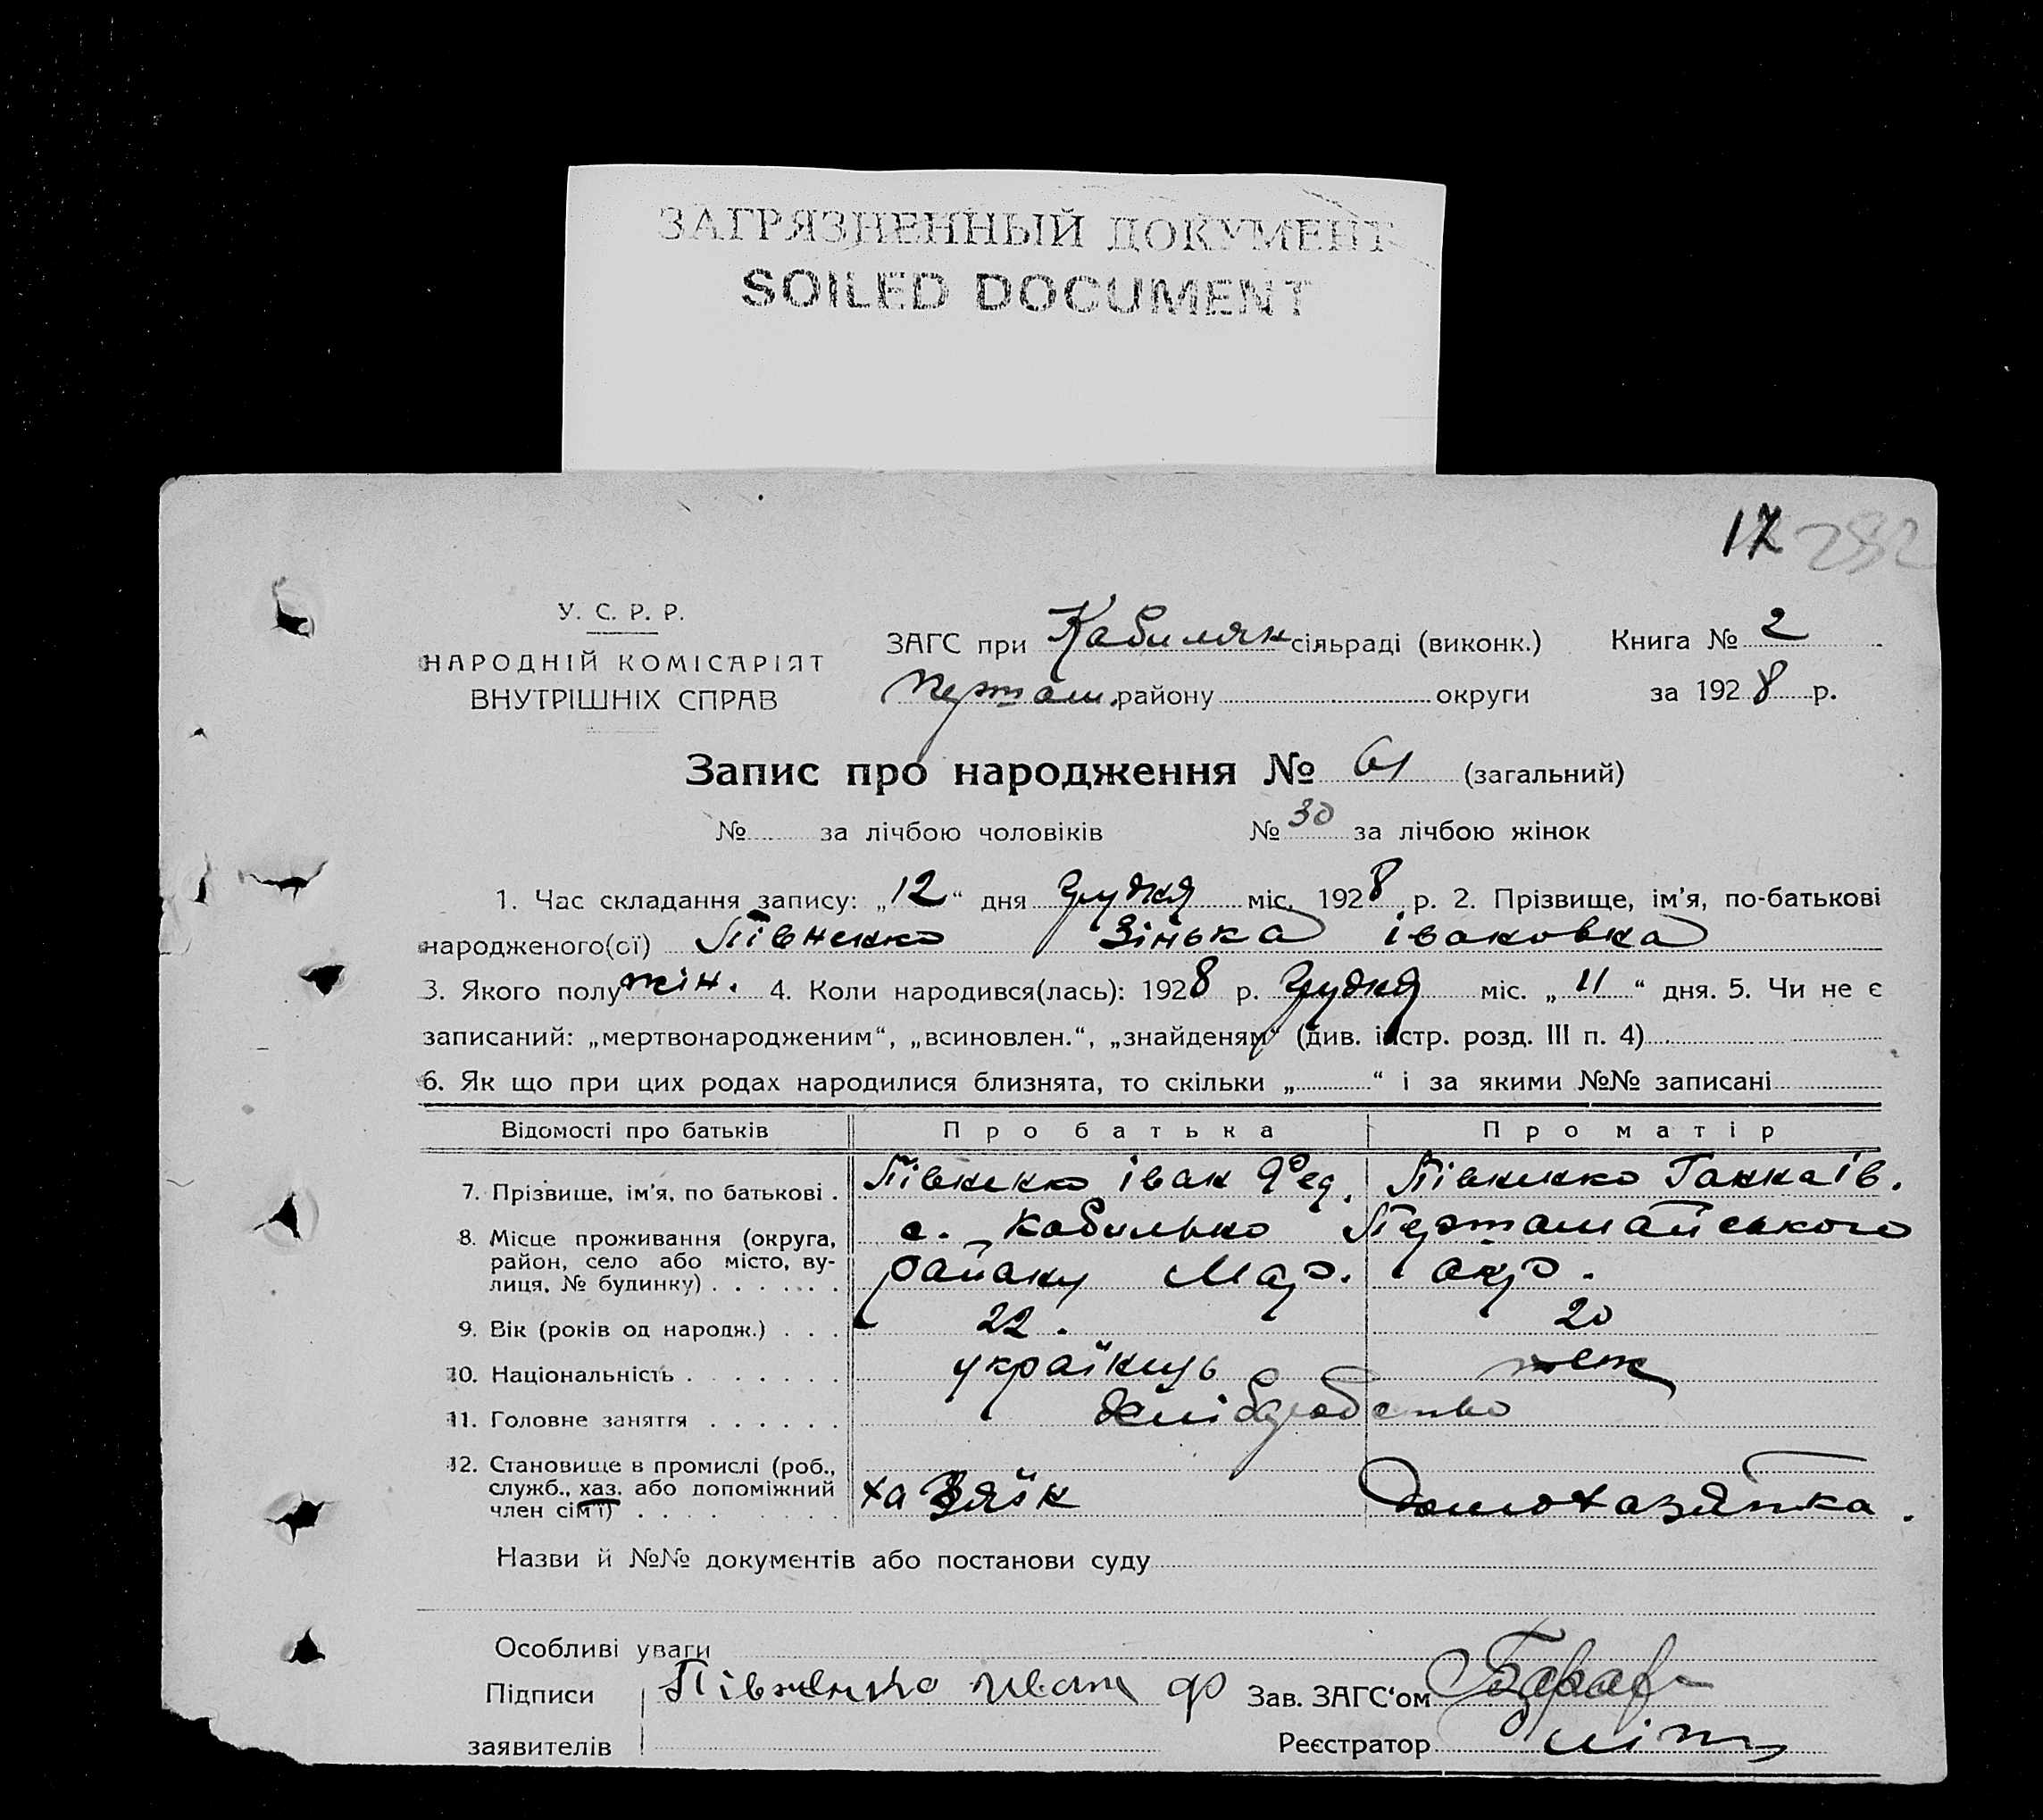 ЗАГРЯЗНЕННЫЙ ДОКУМЕНТ
SOILED DOCUMENT
17 292
У. С. Р. Р.
НАРОДНІЙ КОМІСАРІЯТ
ВНУТРІШНІХ СПРАВ
ЗАГС при Кобиляк сільраді (виконк.) Книга № 2
району округи за 1928 р.
Запис про народження № 61 (загальний)
№ за лічбою чоловіків № 30 за лічбою жінок
1. Час складання запису: „12“ дня Грудня міс. 1928 р. 2. Прізвище, ім'я, по-батькові
народженого(ої) Півненко Зінька Івановна
3. Якого полу жін. 4. Коли народився(лась): 1928 р. Грудня міс. „11“ дня. 5. Чи не є
записаний: „мертвонародженим“, „всиновлен.“, „знайденям“ (див. інстр. розд. III п. 4)
6. Як що при цих родах народилися близнята, то скільки „ “ і за якими №№ записані
Відомості про батьків Про батька Про матір
7. Прізвище, ім'я, по батькові . Півненко Іван Фед. Півненко Ганна Ів.
8. Місце проживання (округа, район, село або місто, вулиця, № будинку) с. Кобилько
району Мар. окр.
9. Вік (років од народж.) 22. 20
10. Національність українець теж
11. Головне заняття Хліборобство
12. Становище в промислі (роб., служб., хаз. або допоміжний член сім'ї) хазяїн домохазяйка.
Назви й №№ документів або постанови суду
Особливі уваги
Підписи Півненко Иван Ф Зав. ЗАГС'ом
заявителів Реєстратор